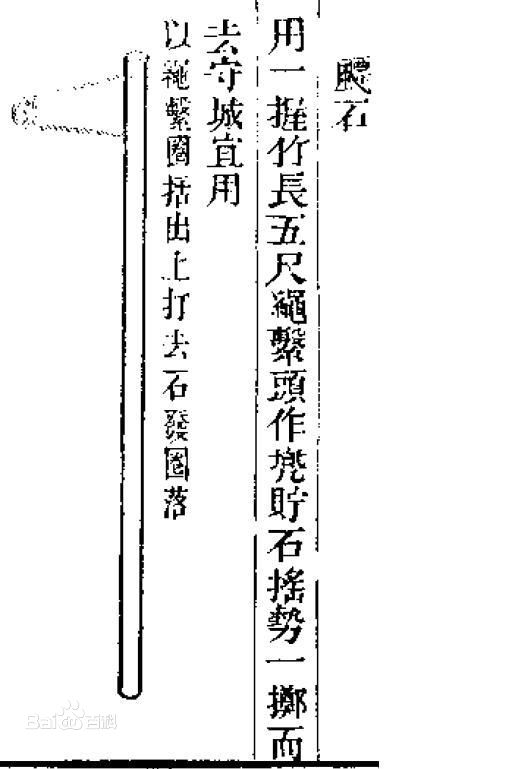 飇石
用一握竹長五尺繩繫頭作兠貯石搖勢一擲而
去守城宜用
以繩繫圈括出上打去石發圈落
Bai 百科